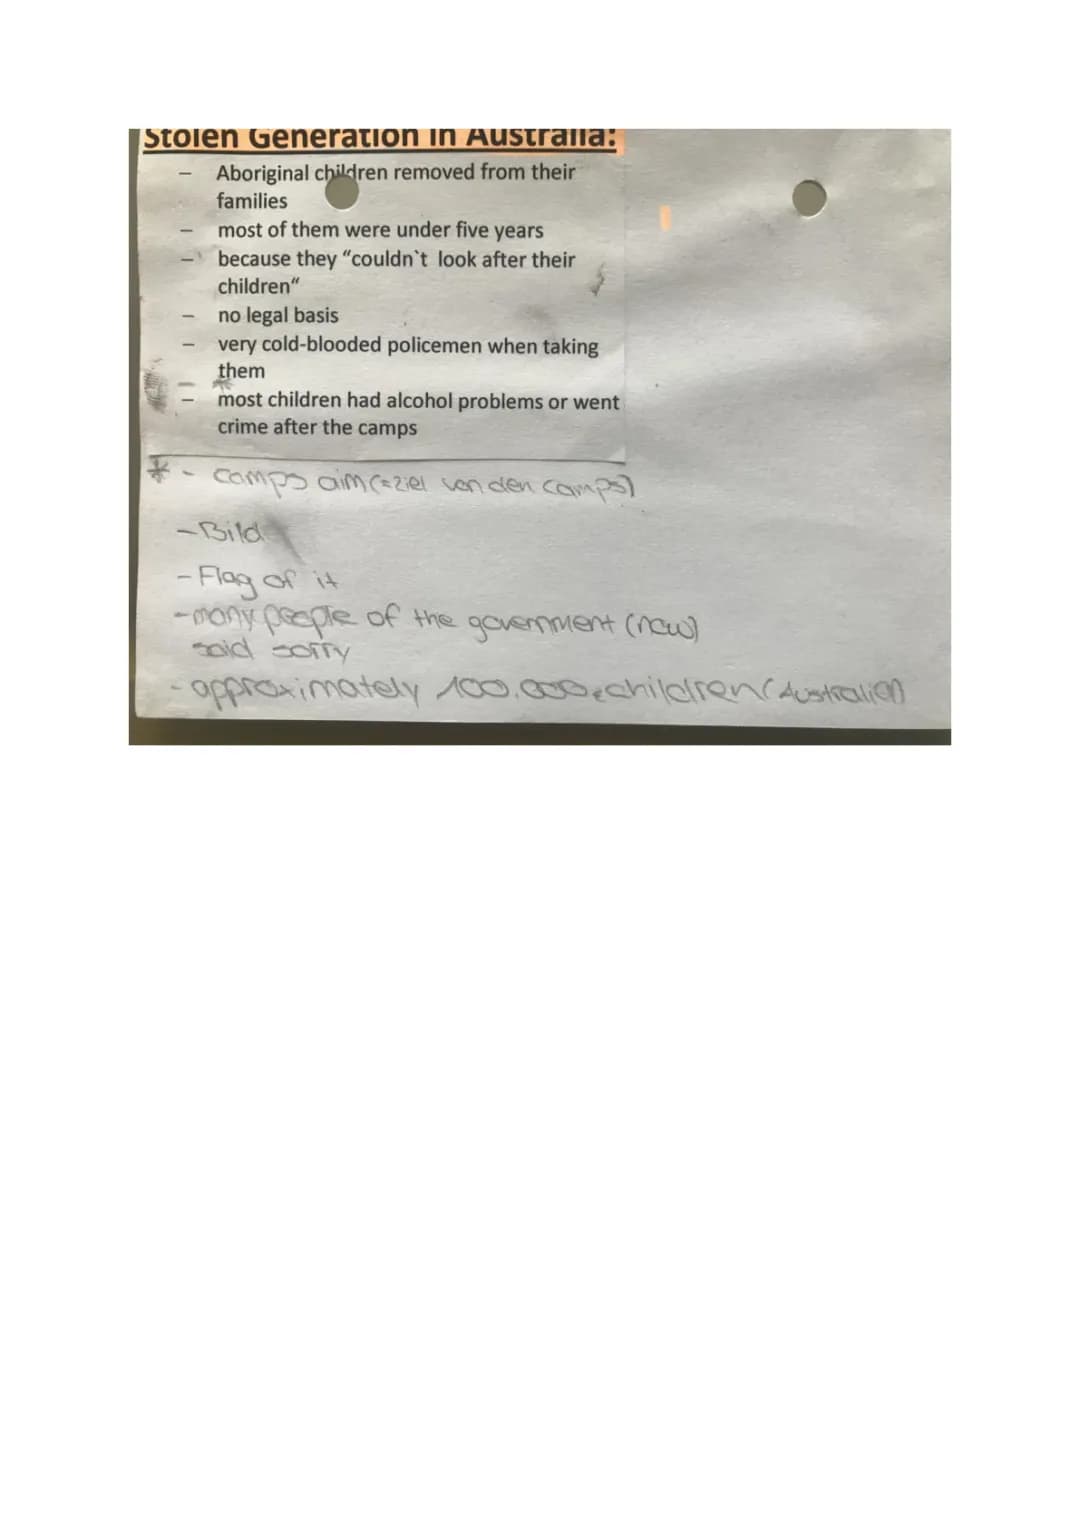 Stolen Generation in Australia:
– Aboriginal children removed from their
families
– most of them were under five years
– because they “couldn`t look after their
children“
– no legal basis
– very cold-blooded policemen when taking
them
–
*
– most children had alcohol problems or went
crime after the camps
* - camps aim (=ziel von den camps)
- Bild
- Flag of it
- many people of the government (now)
said sorry
- approximately 100.000 children (Australien)